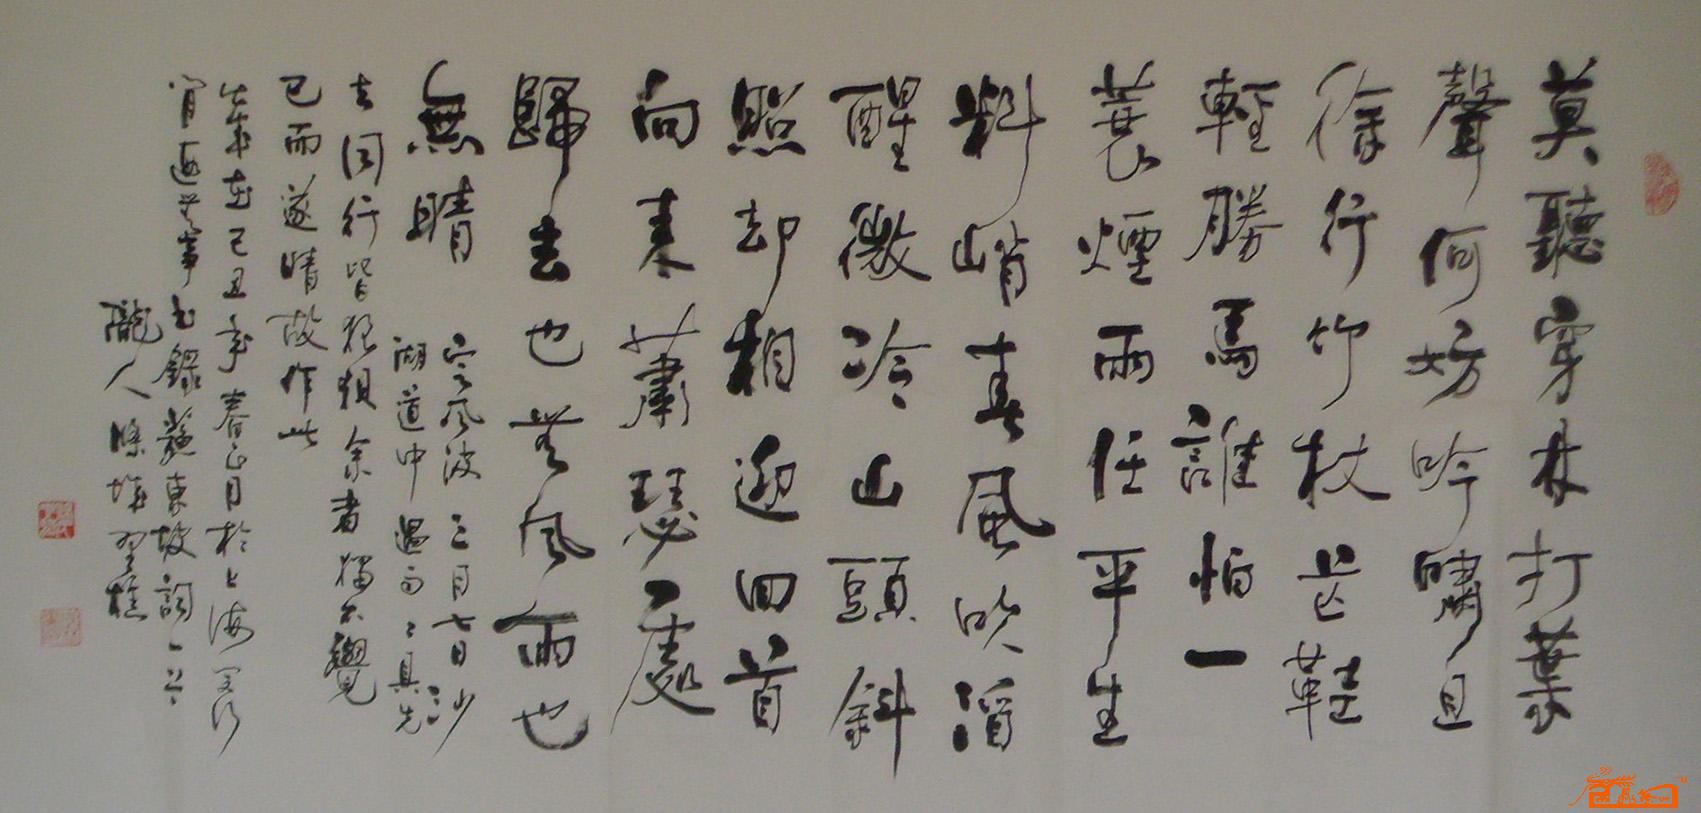 莫聽穿林打葉
聲何妨吟嘯且
徐行竹杖芒鞋
輕勝馬誰怕一
蓑煙雨任平生
料峭春風吹酒
醒微冷山頭斜
照却相迎回首
向來蕭瑟處
歸去也無風雨也
無晴
定風波 三月七日沙
湖道中遇雨雨具先
去同行皆狼狽余者獨不覺
已而遂晴故作此
歲在己丑年春正月於上海
書錄蘇東坡詞一首
隴人